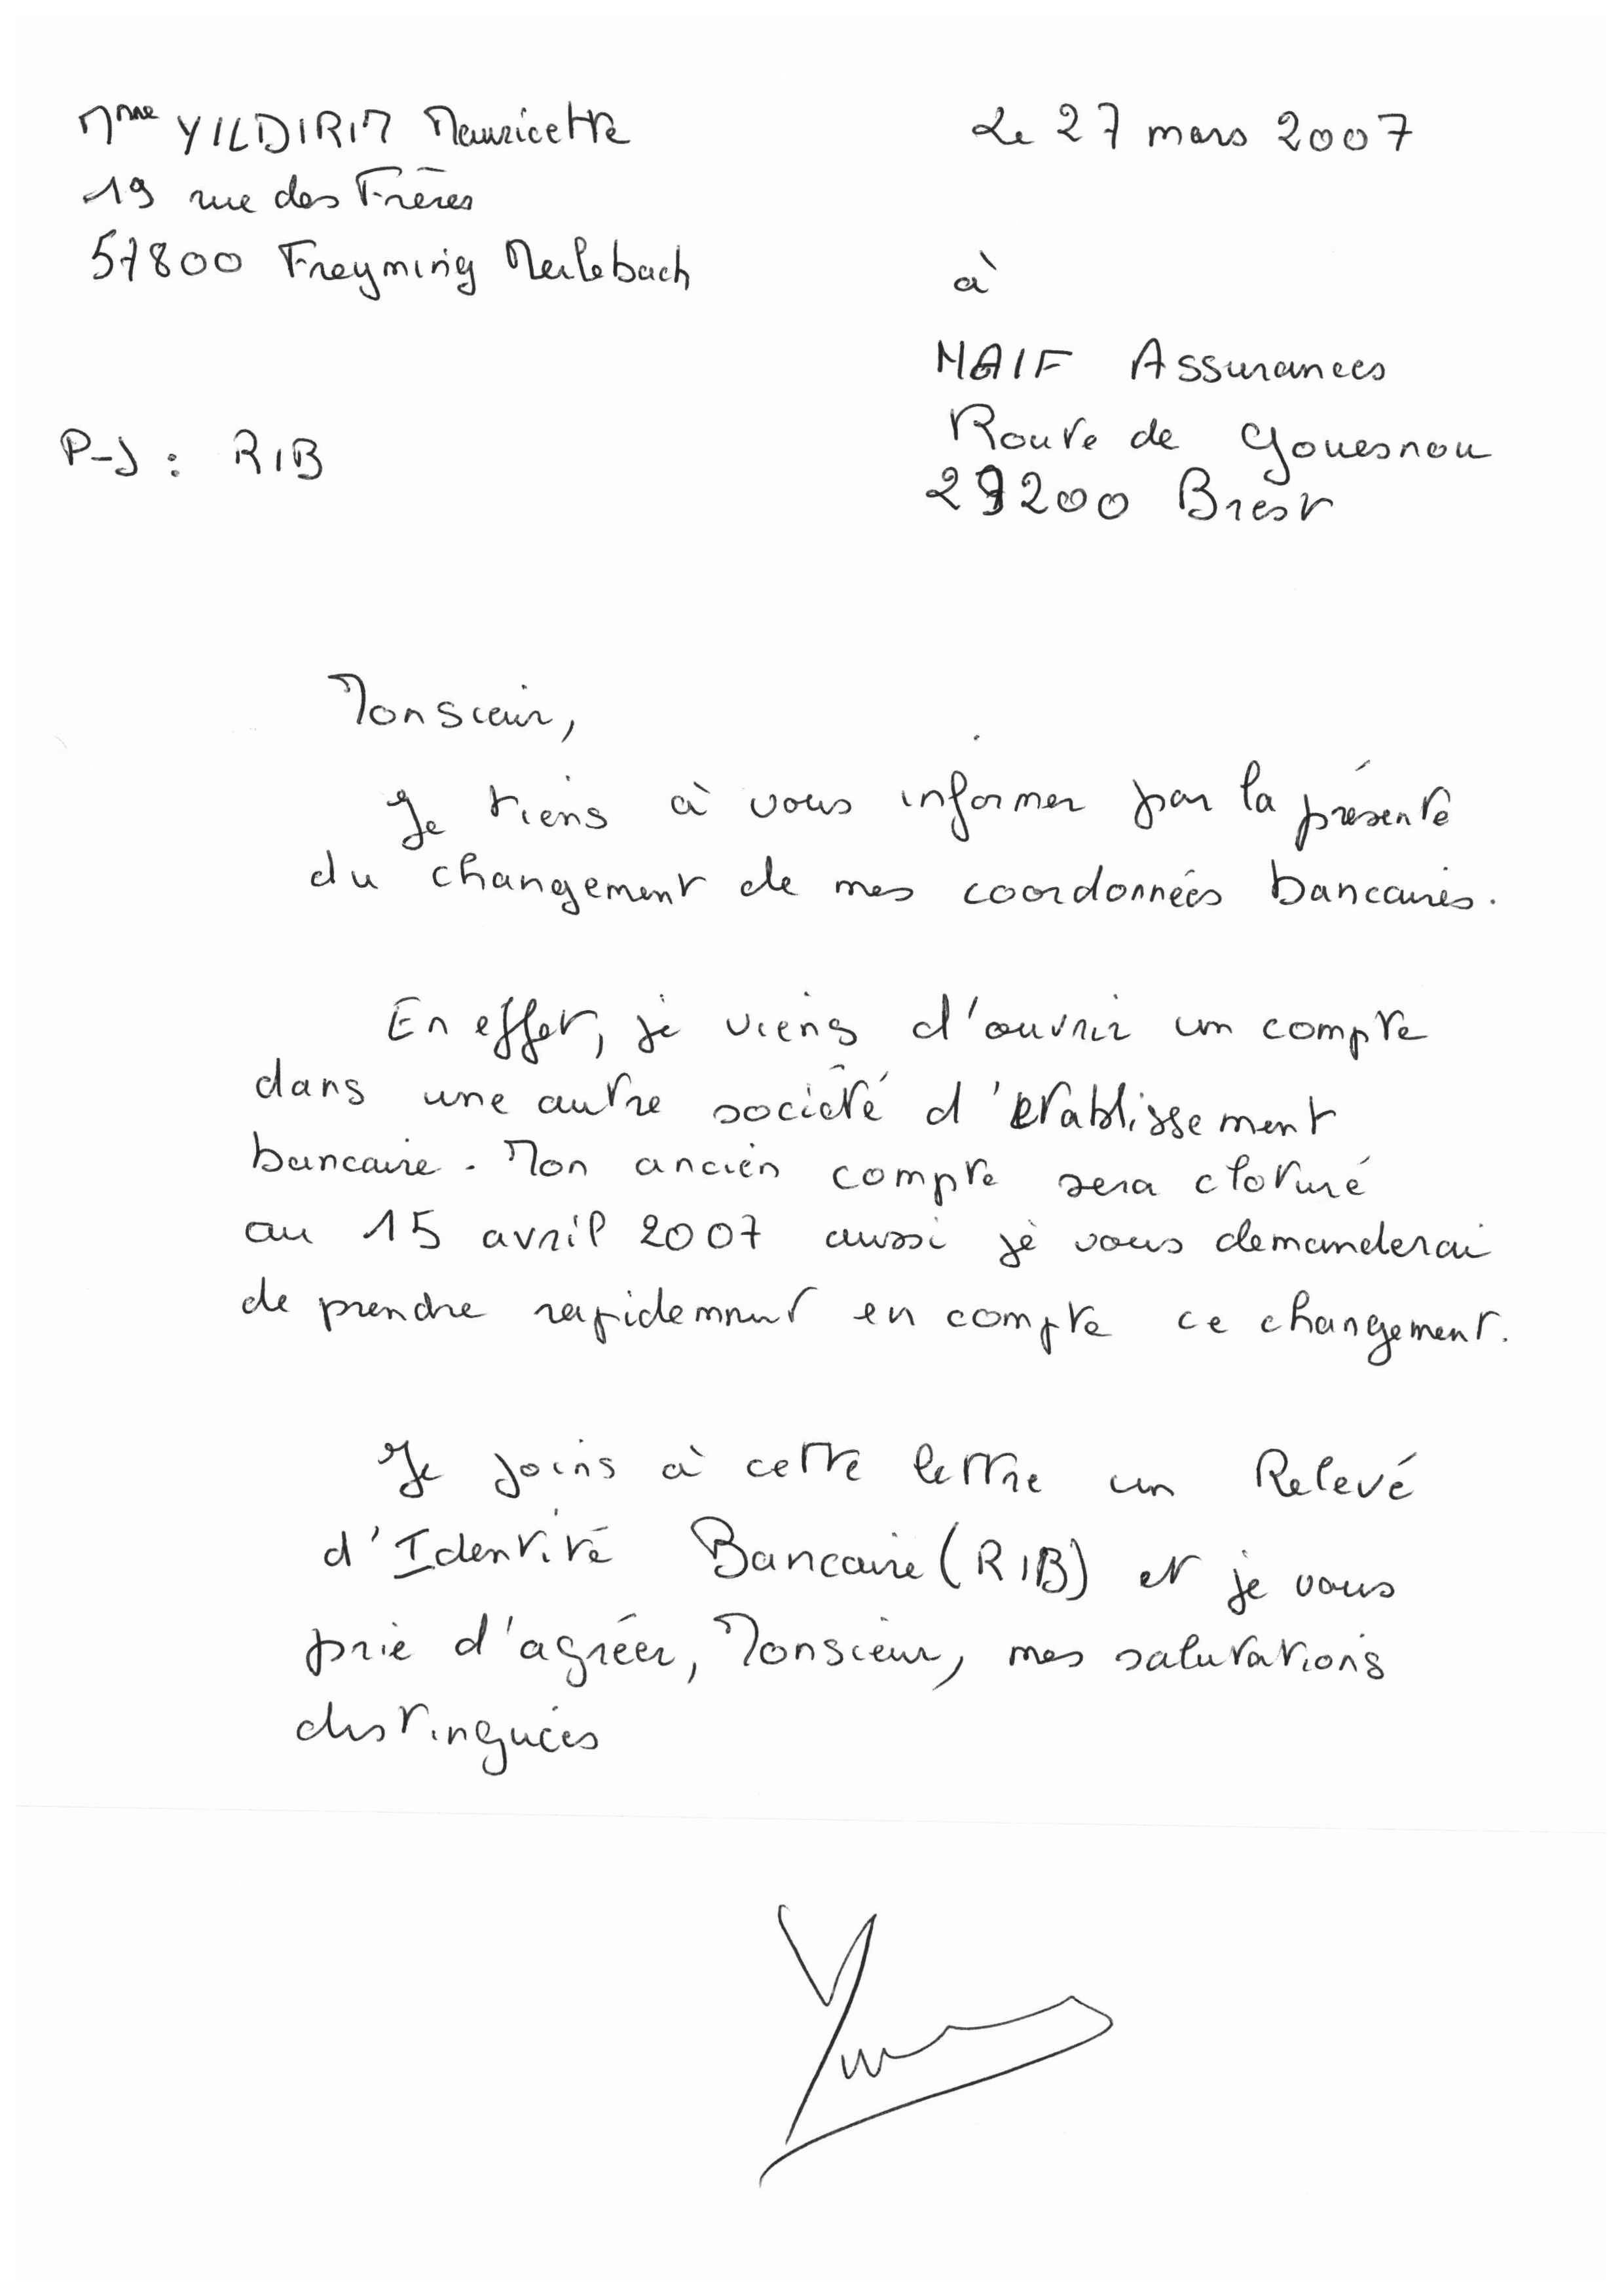 Mme YILDIRIM Mauricette
19 rue des Frères
57800 Freyming Merlebach
Le 27 mars 2007
à
MAIF Assurances
Route de Gouesnou
29200 Brest
P-J : RIB
Monsieur,
Je tiens à vous informer par la présente
du changement de mes coordonnées bancaires.
En effet, je viens d'ouvrir un compte
dans une autre société d'établissement
bancaire. Mon ancien compte sera cloturé
au 15 avril 2007 aussi je vous demanderai
de prendre rapidement en compte ce changement.
Je joins à cette lettre un Relevé
d'Identité Bancaire (RIB) et je vous
prie d'agréer, Monsieur, mes salutations
distinguées